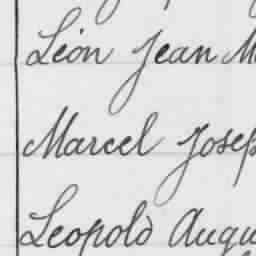 Léon Jean M
Marcel Josep
Leopold Augu